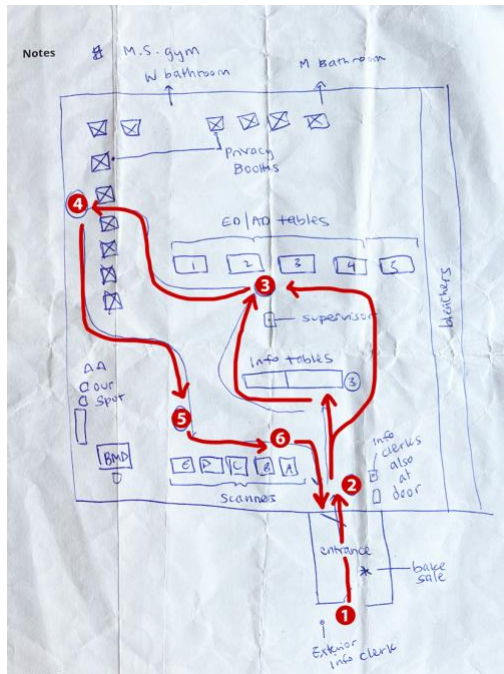 Notes
M.S. gym
W bathroom
M Bathroom
Privacy
Booths
4
ED/AD tables
1 2 3 4 5
3
supervisor
bleachers
Info tables
3
our
spot
5
6
BMD
E D C B A
scanners
Info
clerks
also
at
door
2
entrance
bake
sale
1
Exterior
info clerk